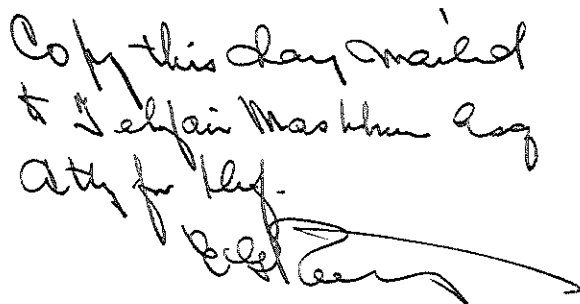 Copy this day mailed
to Telfair Mashburn Esq
Atty for Def.